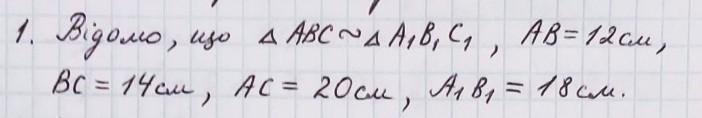 1. Відомо, що △ ABC ~ △ A₁B₁C₁, AB = 12 см,
BC = 14 см, AC = 20 см, A₁B₁ = 18 см.